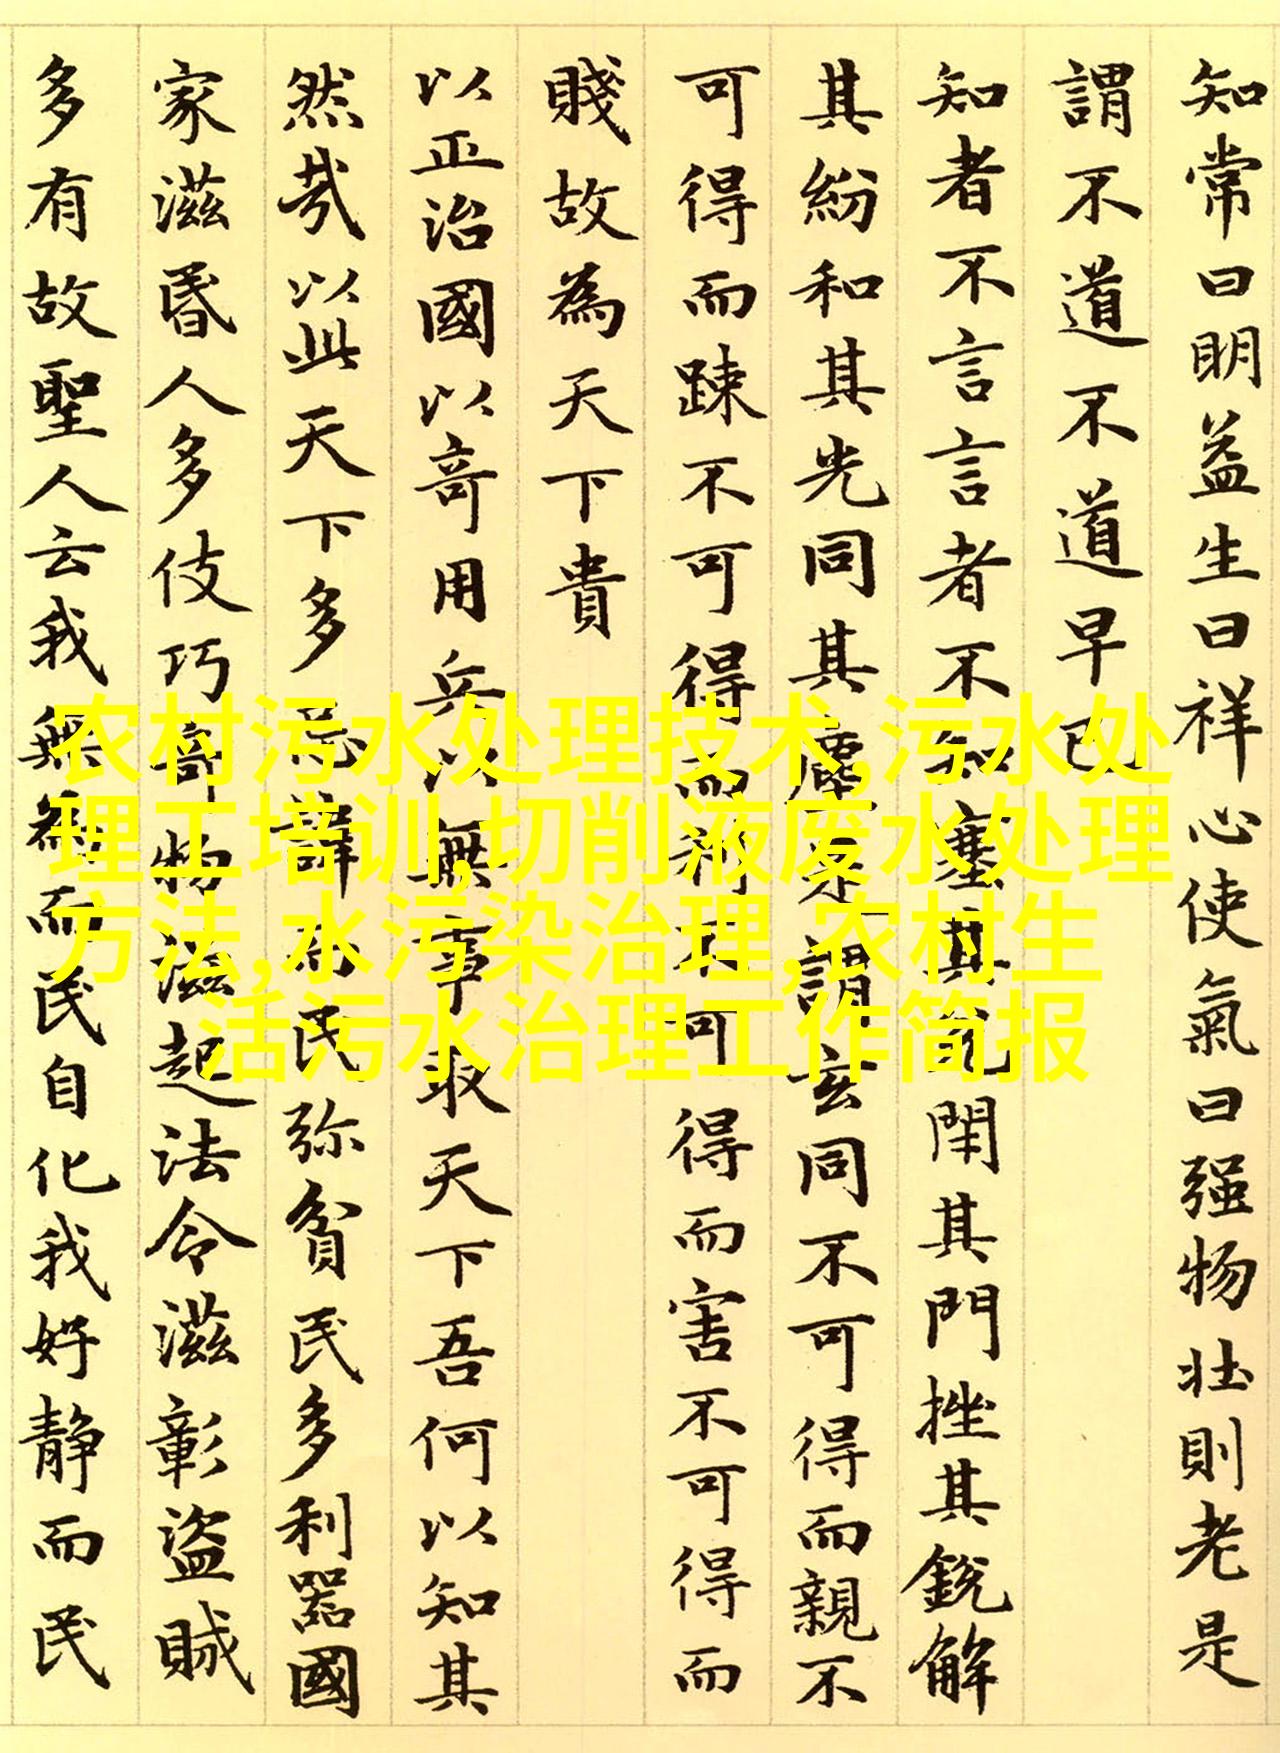 知常曰明益生曰祥心使氣曰强物壮則老是
謂不道不道早已
知者不言言者不知塞其兌閈其門挫其銳解
其紛和其光同其塵是謂玄同不可得而親不
可得而踈不可得而利不可得而害不可得而
賤故為天下貴
以正治國以奇用兵以無事取天下吾何以知其
然㢤以此天下多忌諱而民弥貧民多利器國
家滋昬人多伎巧奇物滋起法令滋彰盜賊
多有故聖人云我無為而民自化我好静而民
农村污水处理技术,污水处
理工培训,切削液废水处理
方法,水污染治理,农村生
活污水治理工作简报